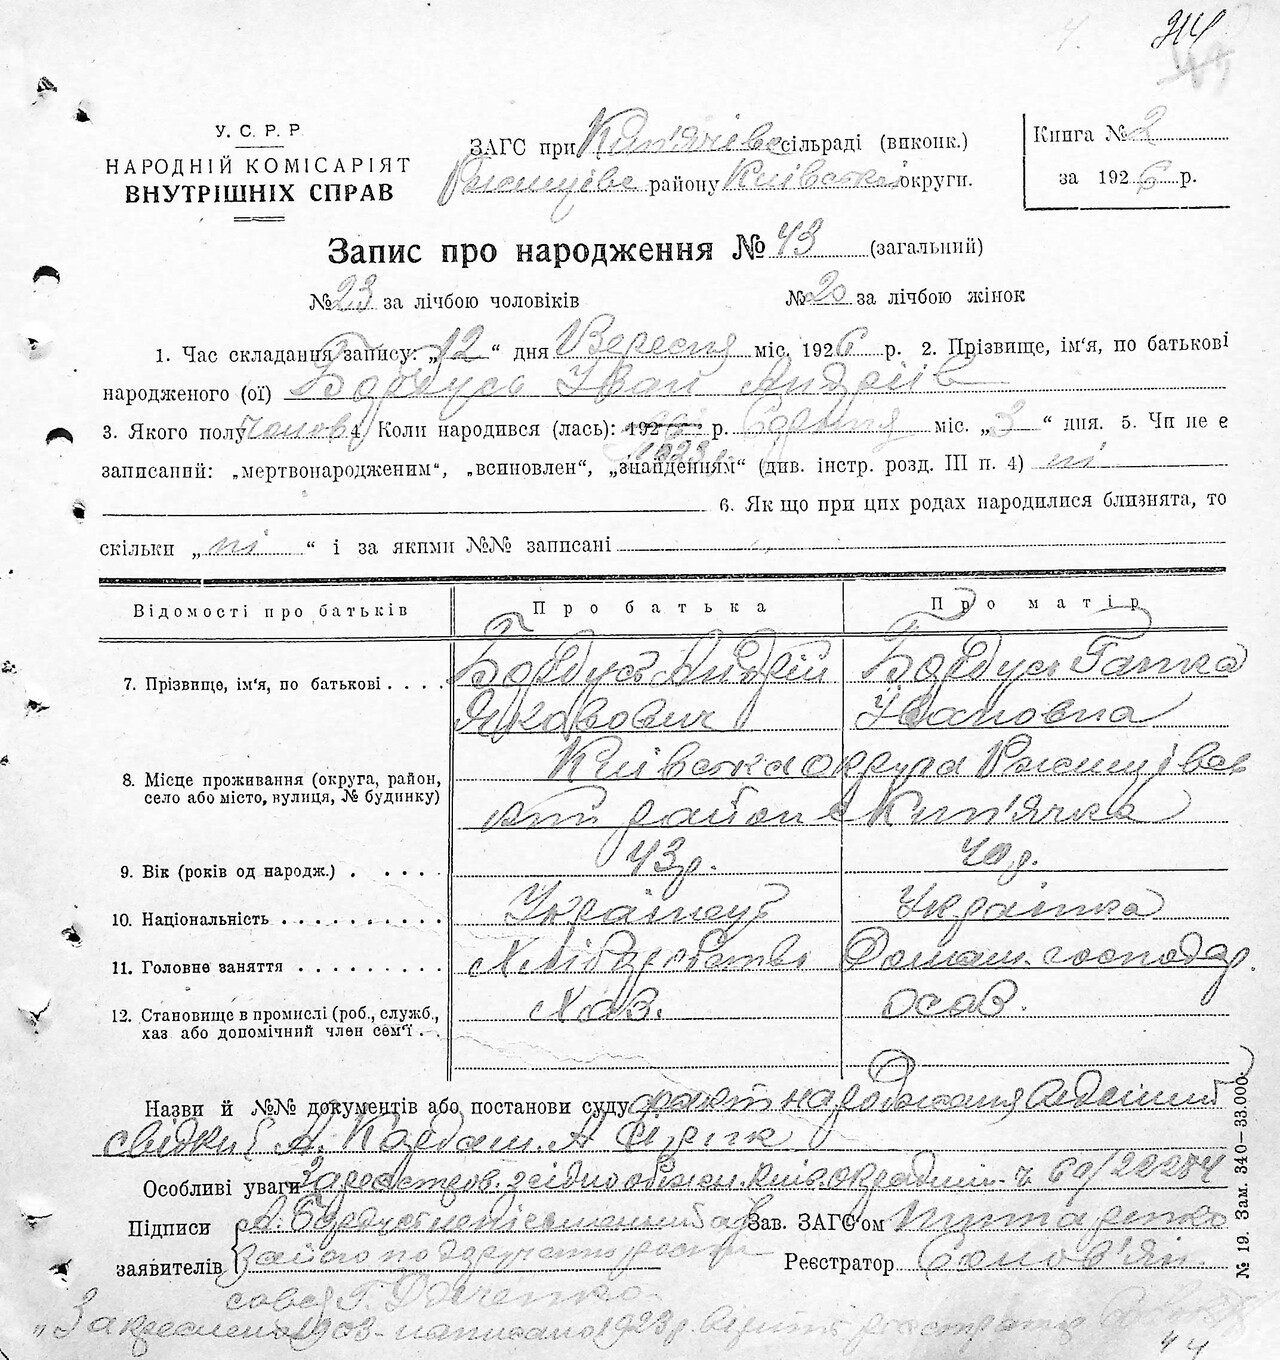 314
У. С. Р. Р
НАРОДНІЙ КОМІСАРІЯТ
ВНУТРІШНІХ СПРАВ
ЗАГС при Кип'ячівс сільраді (виконк.)
Ржищівс району Київської округи.
Книга № 2
за 1926 р.
Запис про народження № 43 (загальний)
№ 23 за лічбою чоловіків № 20 за лічбою жінок
1. Час складання запису: „12“ дня Вересня міс. 1926 р. 2. Прізвище, ім'я, по батькові
народженого (ої) Бардусь Іван Андріїв
3. Якого полу Чолов 4. Коли народився (лась): 192 р. Серпня міс. „3“ дня. 5. Чи не є
1923 р.
записаний: „мертвонародженим“, „всиновлен“, „знайденням“ (див. інстр. розд. III п. 4) ні
6. Як що при цих родах народилися близнята, то
скільки „ні“ і за якими №№ записані
Відомості про батьків Про батька Про матір
7. Прізвище, ім'я, по батькові . . . . Бардусь Андрій Бардусь Ганка
Якович Івановна
8. Місце проживання (округа, район, село або місто, вулиця, № будинку) Київська округа Ржищівсь
кий район с Кип'ячка
9. Вік (років од народж.) . . . . . 43 р. 40 р.
10. Національність . . . . . . . . . . Українець Українка
11. Головне заняття . . . . . . . . . Хліборобство Домаш. господар.
12. Становище в промислі (роб., служб., хаз або допомічний член сем'ї . . Хаз. осав.
Назви й №№ документів або постанови суду факт народження
свідки А. А
Особливі уваги Зареєстров. згідно обіжн. Київ. окрадмін. ч 69/22284
Підписи А. Бардусь неписьменний а Зав. ЗАГС'ом
заявителів за його Реєстратор
Г. Дяченко
„Закреслено 1903 - написано 1923 р. вірити реєстратор
№ 19. Зам. 340—33.000.